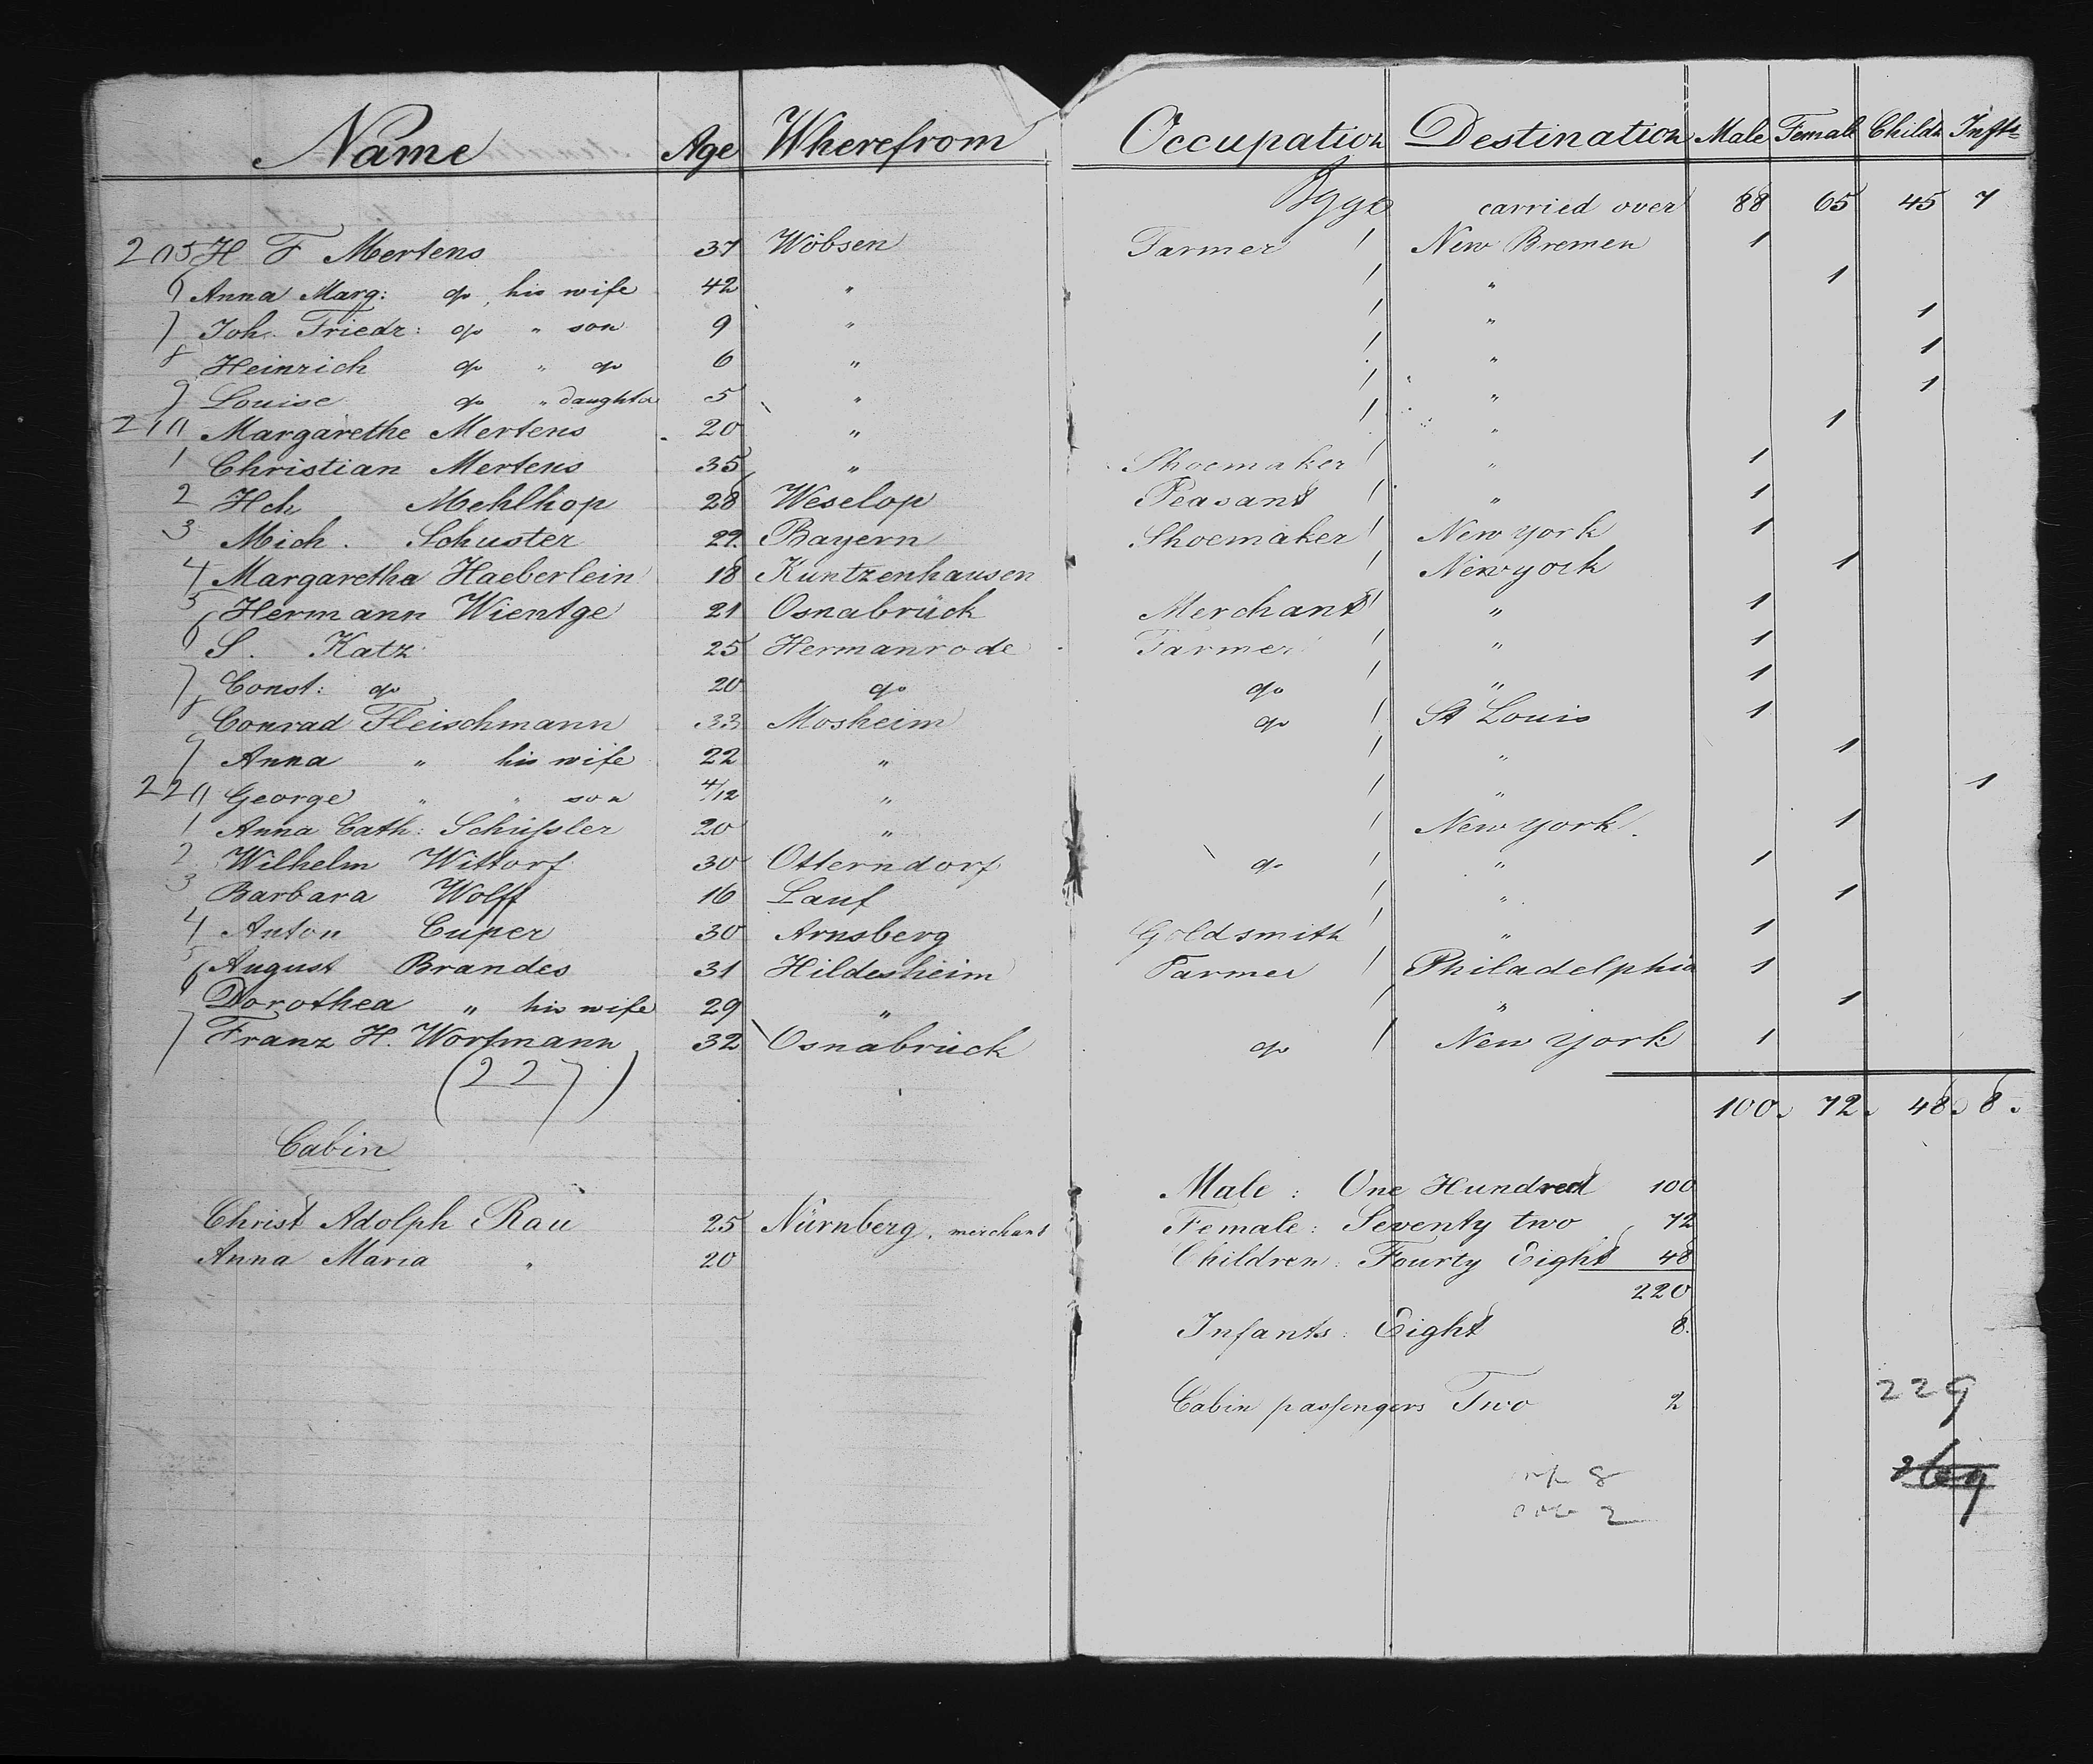 Name Age Wherefrom Occupation Destination Male Female Childn Infts
carried over 88 65 45 7
205 H F Mertens 37 Wöbsen Farmer / New Bremen 1
6 Anna Marg: do, his wife 42 " / " 1
7 Joh. Friedr: do " son 9 " / " 1
8 Heinrich do " do 6 " / " 1
9 Louise do " daughter 5 " / " 1
210 Margarethe Mertens 20 " / " 1
1 Christian Mertens 35 " Shoemaker / " 1
2 Hch Mehlhop 28 Weselop Peasant / " 1
3 Mich. Schuster 29 Bayern Shoemaker / New York 1
4 Margaretha Haeberlein 18 Kuntzenhausen / New york 1
5 Hermann Wientge 21 Osnabrück Merchant / " 1
6 S. Katz 25 Hermanrode Farmer / " 1
7 Const: do 20 do do / " 1
8 Conrad Fleischmann 33 Mosheim do / St Louis 1
9 Anna " his wife 22 " / " 1
220 George " " son 4/12 " / " 1
1 Anna Cath: Schüssler 20 " / New York. 1
2 Wilhelm Wittorf 30 Otterndorf do / " 1
3 Barbara Wolff 16 Lauf / " 1
4 Anton Cuper 30 Arnsberg Goldsmith / " 1
5 August Brandes 31 Hildesheim Farmer / Philadelphia 1
6 Dorothea " his wife 29 " / " 1
7 Franz H. Wortmann 32 Osnabrück do / New York 1
(227)
100. 72. 48. 8.
Cabin
Male: One Hundred 100
Christ Adolph Rau 25 Nürnberg. merchant Female: Seventy two 72
Anna Maria " 20 Children: Fourty Eight 48
220
Infants: Eight 8.
Cabin passengers Two 2 229
8
2